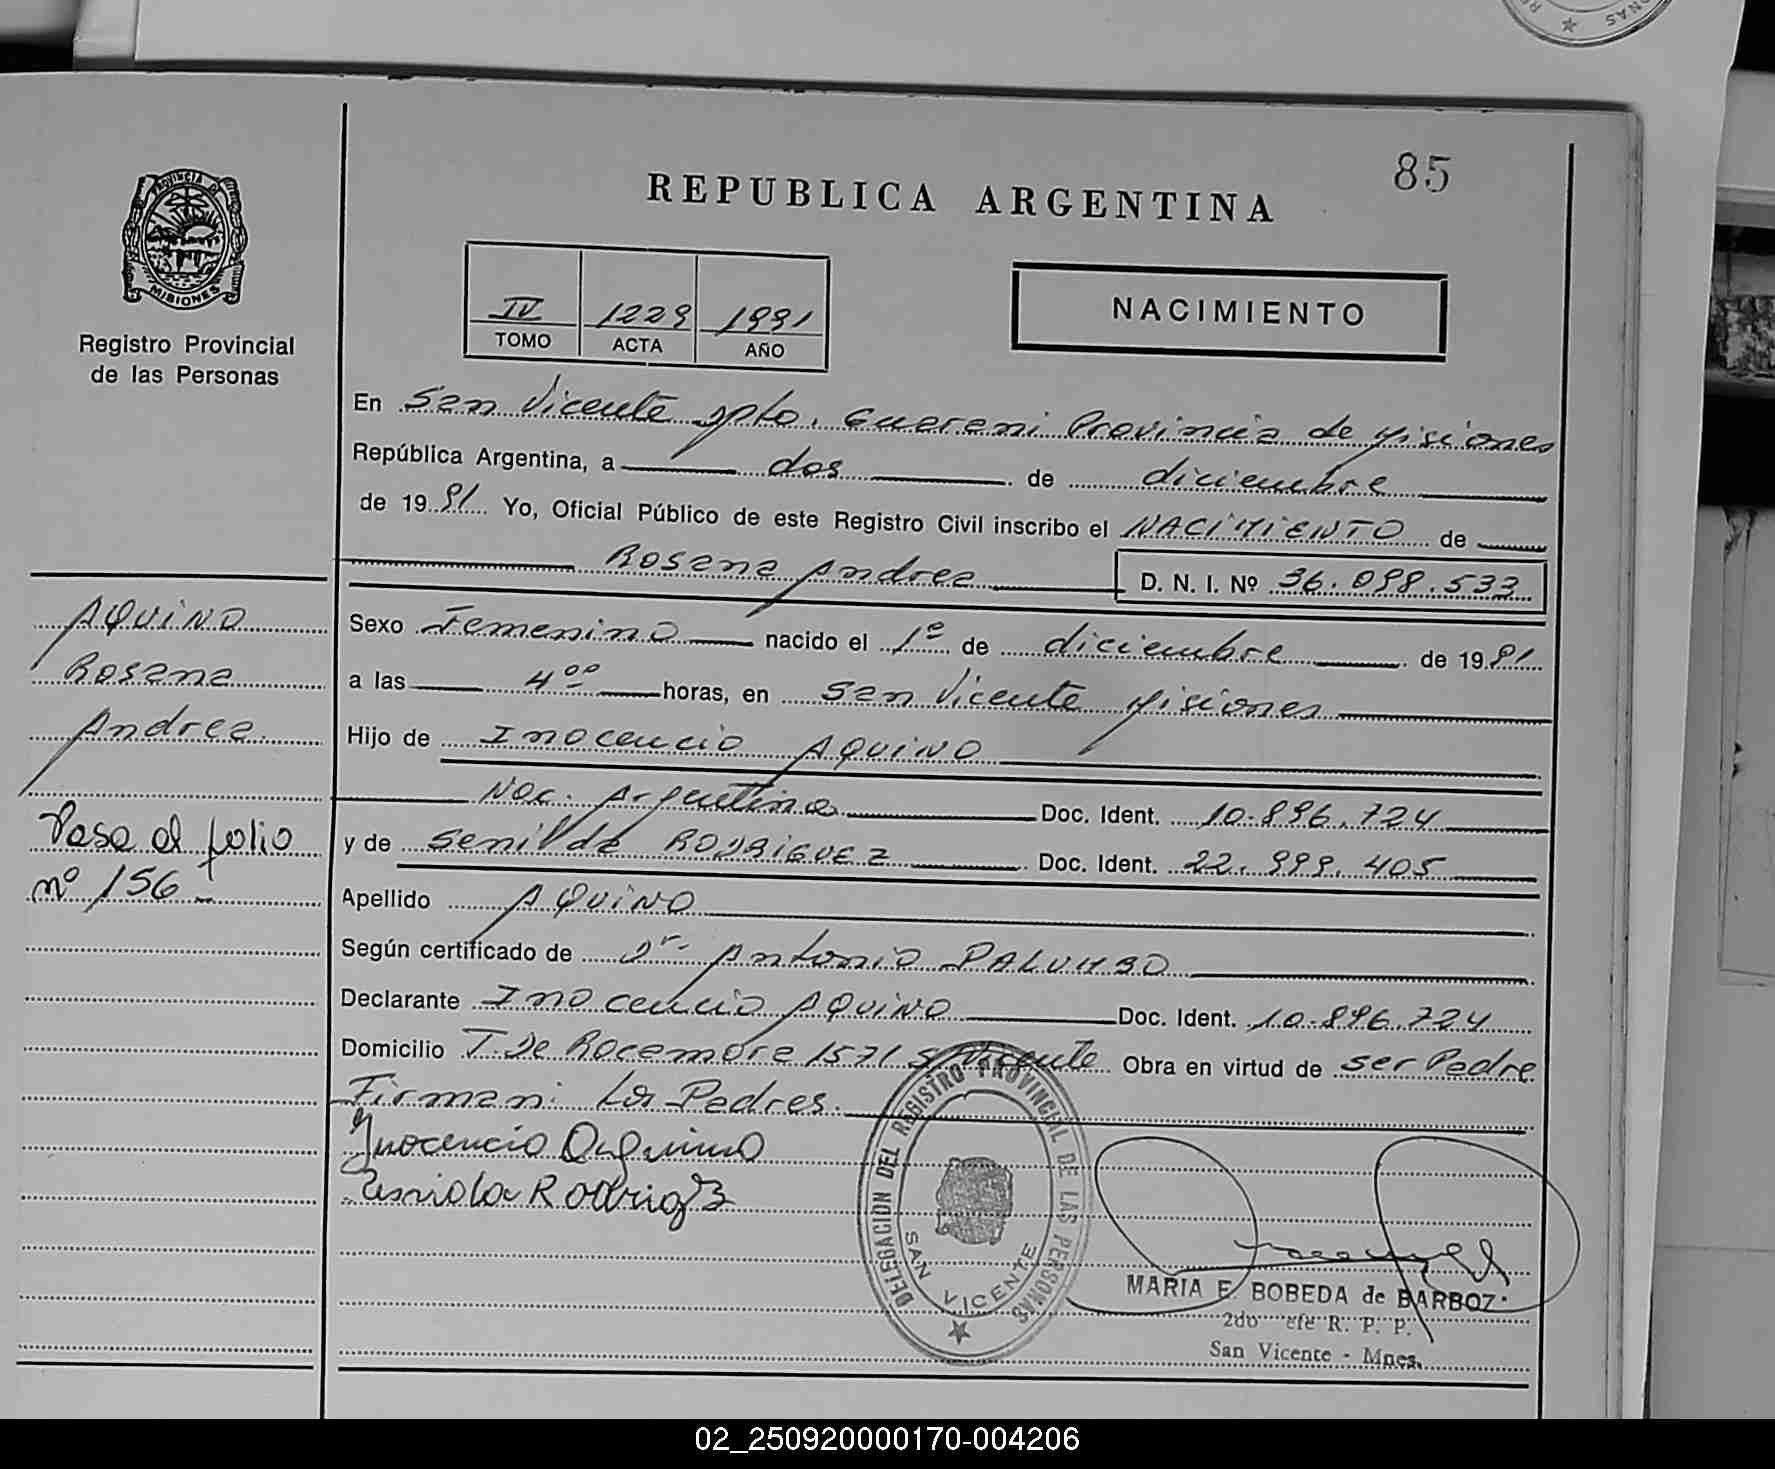 85
REPUBLICA ARGENTINA
PROVINCIA DE
MISIONES
Registro Provincial
de las Personas
IV 1229 1991
TOMO ACTA AÑO
NACIMIENTO
En San Vicente Dpto. Guarani Provincia de Misiones
República Argentina, a dos de diciembre
de 1991 Yo, Oficial Público de este Registro Civil inscribo el NACIMIENTO de
Rosana Andrea D. N. I. Nº 36.098.533
AQUINO
Rosana
Andrea
Sexo Femenino nacido el 1º de diciembre de 1991
a las 4ºº horas, en San Vicente Misiones
Hijo de Inocencio AQUINO
Nac. Argentina Doc. Ident. 10.896.724
Pasa al folio
nº 156
y de Senilda RODRIGUEZ Doc. Ident. 22.999.405
Apellido AQUINO
Según certificado de Dr. Antonio PALUMBO
Declarante Inocencio AQUINO Doc. Ident. 10.896.724
Domicilio T. De Rocamora 1571 S/Vicente Obra en virtud de ser Padre
Firman: Los Padres.
Inocencio Aquino
Rodrig
DELEGACION DEL REGISTRO PROVINCIAL DE LAS PERSONAS
SAN VICENTE
MARIA E. BOBEDA de BARBOZ
2do efe R. P. P.
San Vicente - Mnes.
02_250920000170-004206